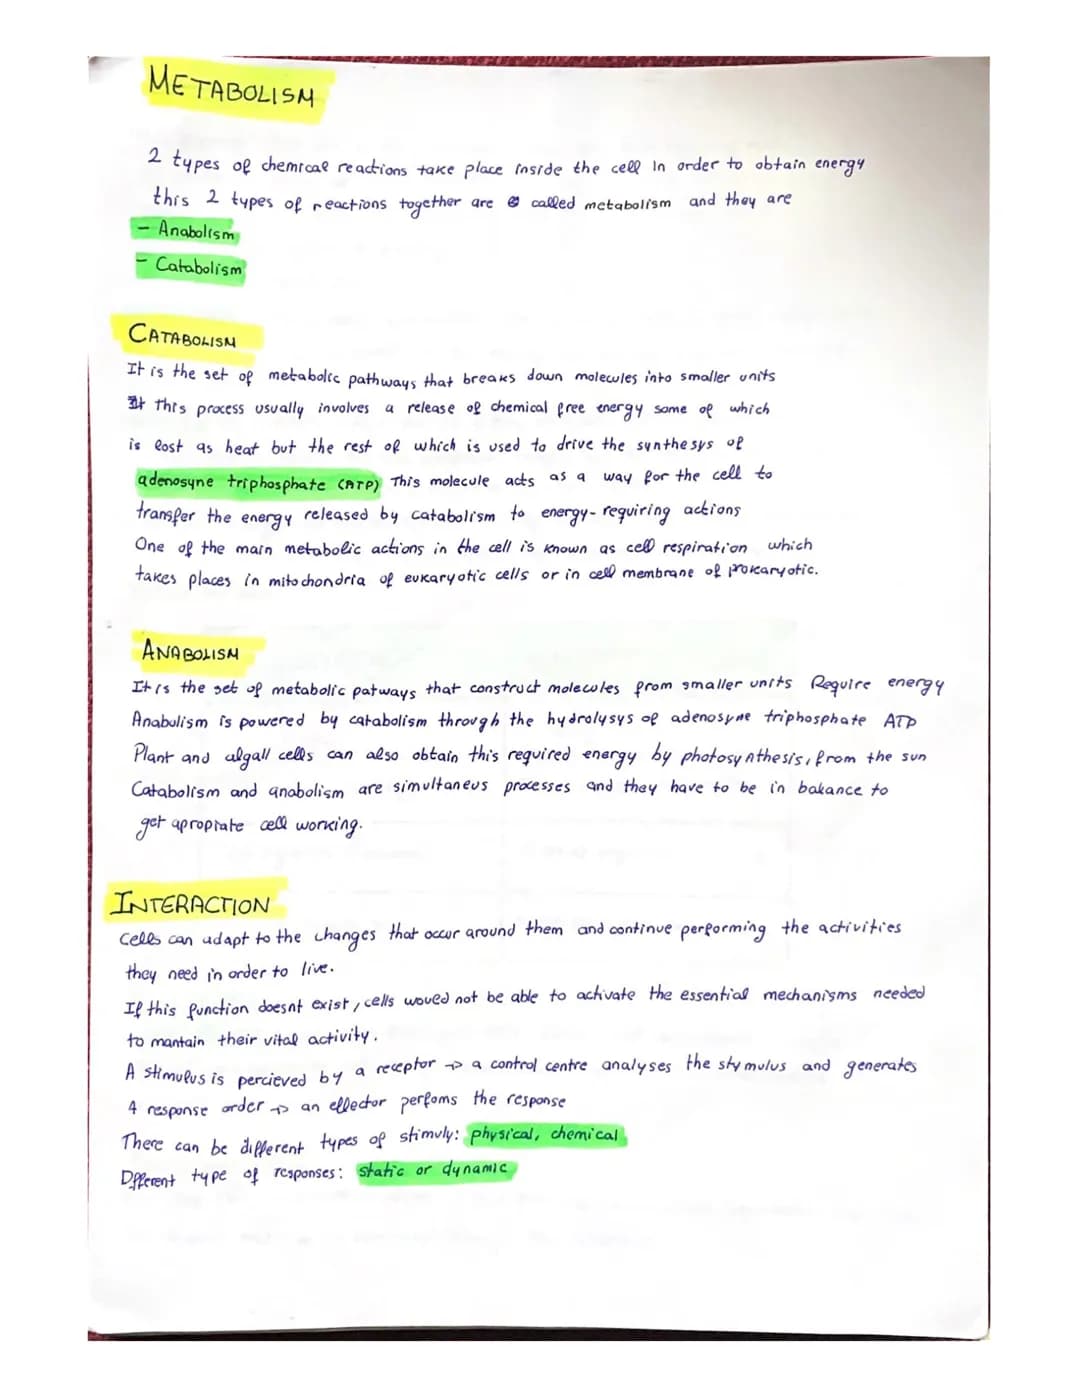 METABOLISM
2 types of chemical reactions take place inside the cell In order to obtain energy
this 2 types of reactions together are called metabolism and they are
- Anabolism
- Catabolism
CATABOLISM
It is the set of metabolic pathways that breaks down molecules into smaller units
This process usually involves a release of chemical free energy some of which
is lost as heat but the rest of which is used to drive the synthesys of
adenosyne triphosphate (ATP) This molecule acts as a way for the cell to
transfer the energy released by catabolism to energy-requiring actions
One of the main metabolic actions in the cell is known as cell respiration which
takes places in mitochondria of eukaryotic cells or in cell membrane of prokaryotic.
ANABOLISM
It is the set of metabolic patways that construct molecules from smaller units Require energy
Anabolism is powered by catabolism through the hydrolysys of adenosyne triphosphate ATP
Plant and algall cells can also obtain this required energy by photosynthesis, from the sun
Catabolism and anabolism are simultaneus processes and they have to be in bakance to
get apropiate cell working.
INTERACTION
Cells can adapt to the changes that occur around them and continue performing the activities
they need in order to live.
If this function doesnt exist, cells woued not be able to activate the essential mechanisms needed
to mantain their vital activity.
A stimulus is percieved by a receptor → a control centre analyses the stymulus and generates
A response order → an effector perfoms the response
There can be different types of stimuly: physical, chemical
Different type of responses: static or dynamic